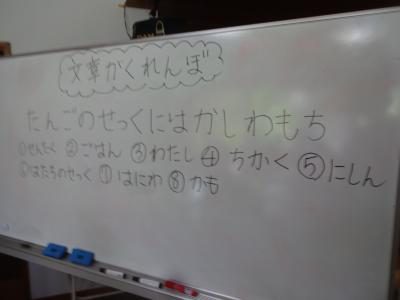 文章がくれんぼ
たんごのせっくにはかしわもち
①せんたく ②ごはん ③わたし ④ちかく ⑤にしん
⑥はたちのせっく ⑦はにわ ⑧かも